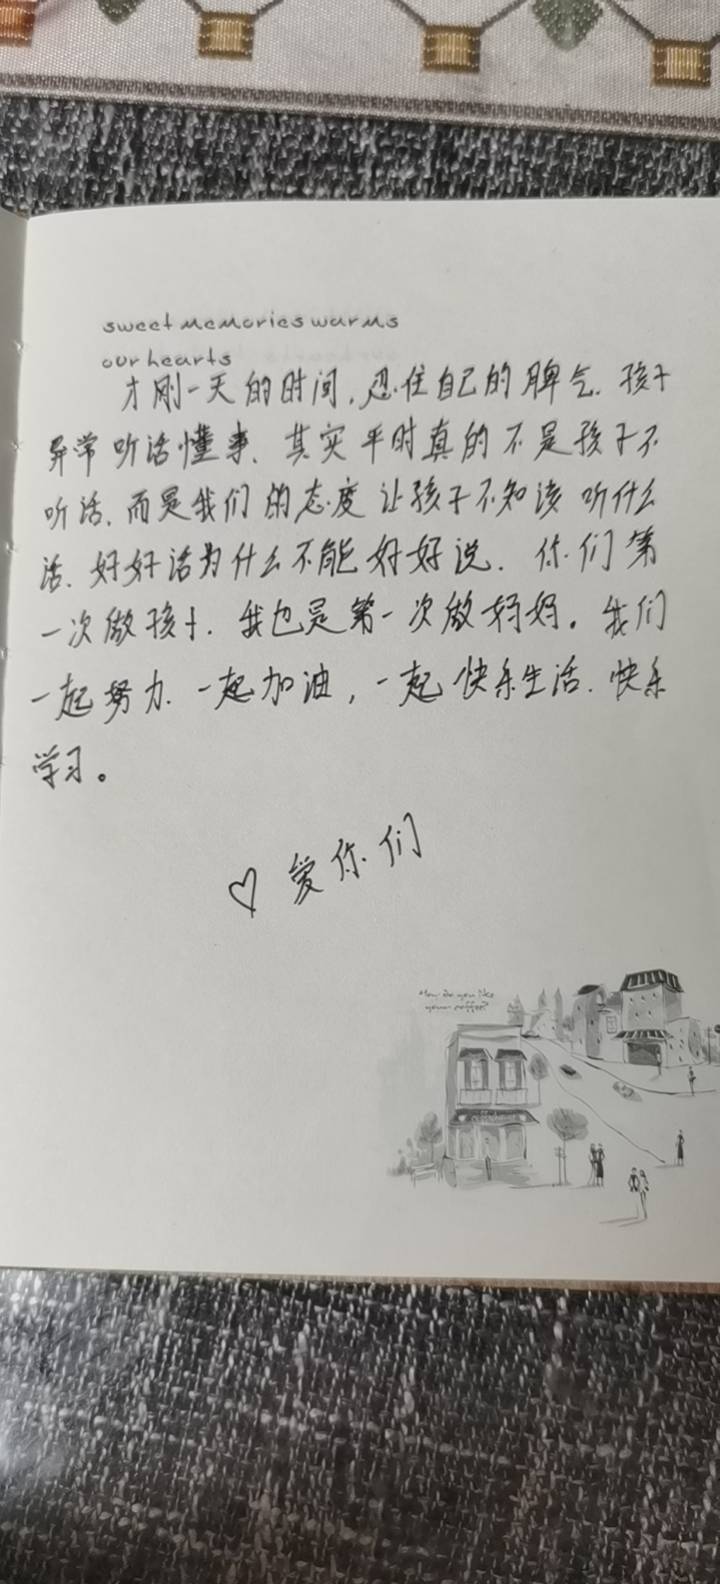 sweet memories warms
our hearts
才刚一天的时间,忍住自己的脾气.孩子
异常听话懂事.其实平时真的不是孩子不
听话.而是我们的态度让孩子不知该听什么
话.好好话为什么不能好好说.你们第
一次做孩子.我也是第一次做妈妈。我们
一起努力.一起加油,一起快乐生活.快乐
学习。
♡ 爱你们
How do you like
your coffee?